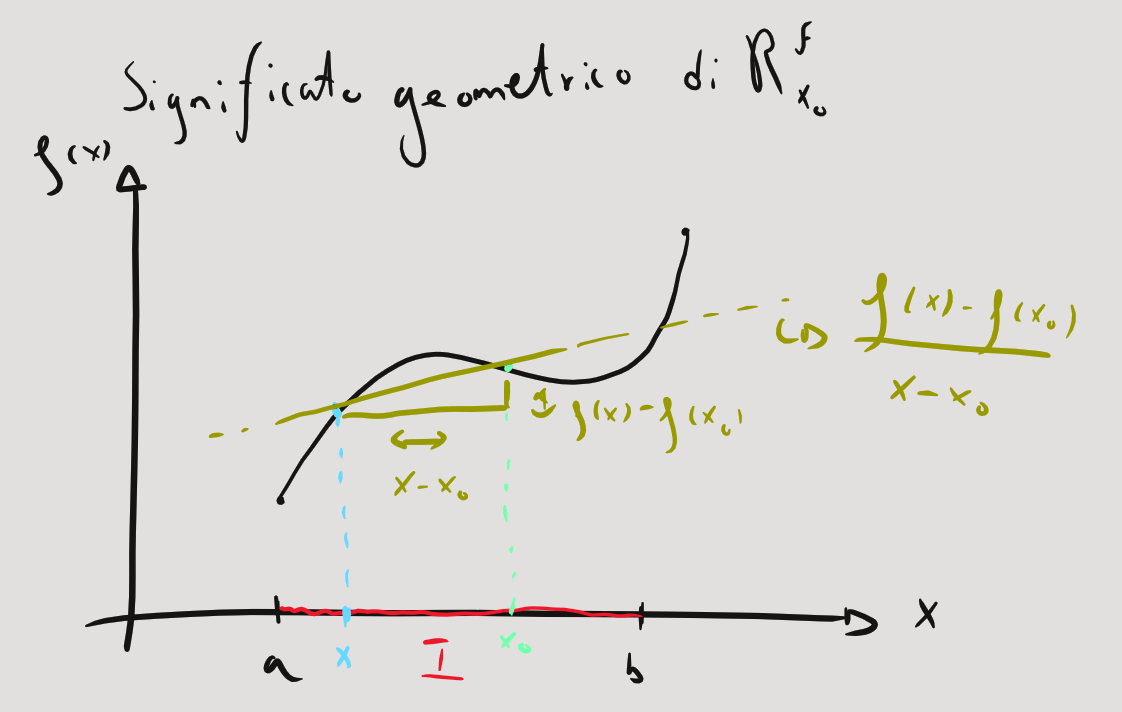 Significato geometrico di R^f_{x_0}
f(x)
f(x) - f(x_0)
x - x_0
f(x) - f(x_0)
x - x_0
X
a
x
I
x_0
b